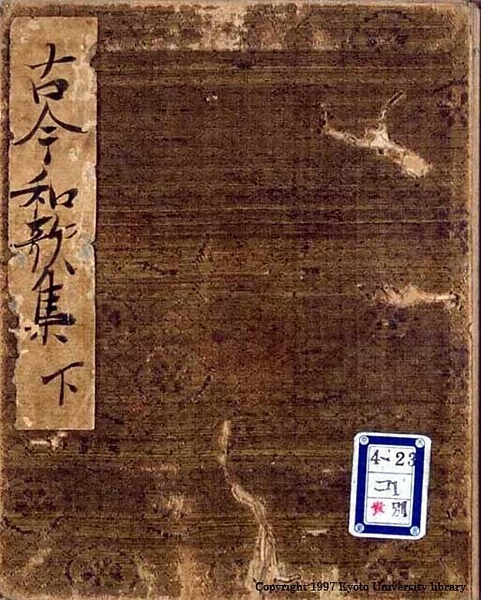 古今和歌集 下
4-23
コ1
貴 別
Copyright 1997 Kyoto University library